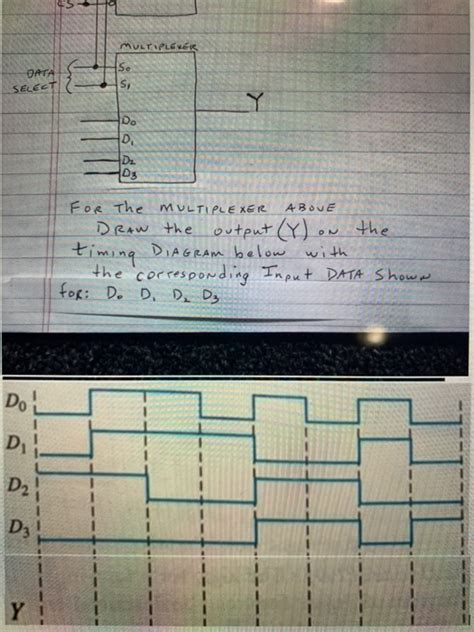 CS
MULTIPLEXER
DATA
SELECT
S0
S1
Y
D0
D1
D2
D3
FOR The MULTIPLEXER ABOVE
DRAW the output (Y) ON the
timing DIAGRAM below with
the corresponding Input DATA Shown
for: D0 D1 D2 D3
D0
D1
D2
D3
Y